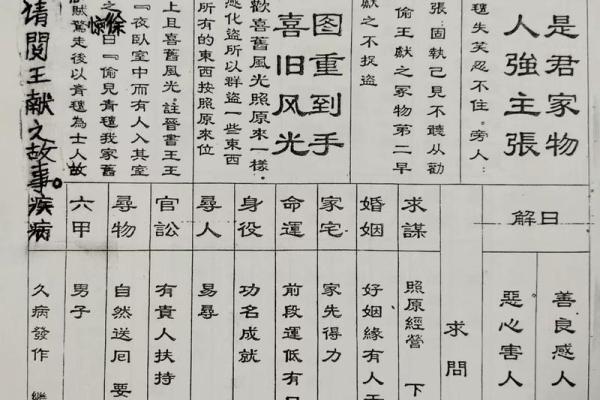 是君家物
人強主張
毯失笑忍不住。旁人:
張:固執己見不聽从勸
偷王獻之家物第二早
獻之不捉盜
图重到手
喜旧风光
歡喜舊風光照原來一樣。
感化盜所以群盜一些東西
所有的東西按照原來位
上且喜舊风光註晉書王王
『夜臥室中而有人入其室
徐
惊
之曰『偷兒青毯我家舊
賊驚走後以青毯為士人故
请閱王献之故事。
解日
善良感人
惡心害人
求問
求謀
照原經營 下
婚姻
好姻緣有人
家宅
家先得力
命運
前段運低有
身役
功名成就
尋人
易尋
官訟
有貴人扶持
尋物
自然送回 要
六甲
男子
疾病
久病發作 繼